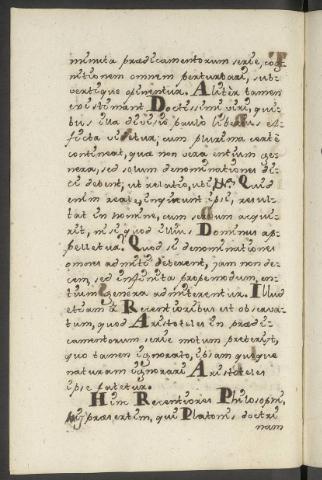 minuta prædicamentorum serie, cog=
nitionem omnem perturbari, sub=
vertique opinentur. Aliter tamen
existimant Doctissimi viri, qui=
bus illa divisio paulo liberius ef=
ficta videtur, cum plurima certè
contineat, quæ non vera entium ge=
nera, sed solum denominationes di=
ci debent, ut relatio, ubi Quid
enim reale, inquiunt ipsi, resul=
tat in homine, cum servum acqui=
rit, nisi quod illius Dominus ap=
pelletur? Quod si denominationes
omnes admitti deberent, jam non de=
cem, sed infinita propemodum, en=
tium genera admitterentur. Illud
etiam à Recentioribus est observa=
tum, quod Aristoteles in prædi=
camentorum serie motum præterijt,
quo tamen ignorato, ipsam quoque
naturam ignorari Aristoteles
ipse fatetur.
Hinc Recentiores Philosophi,
ij præsertim, qui Platonis doctri
nam